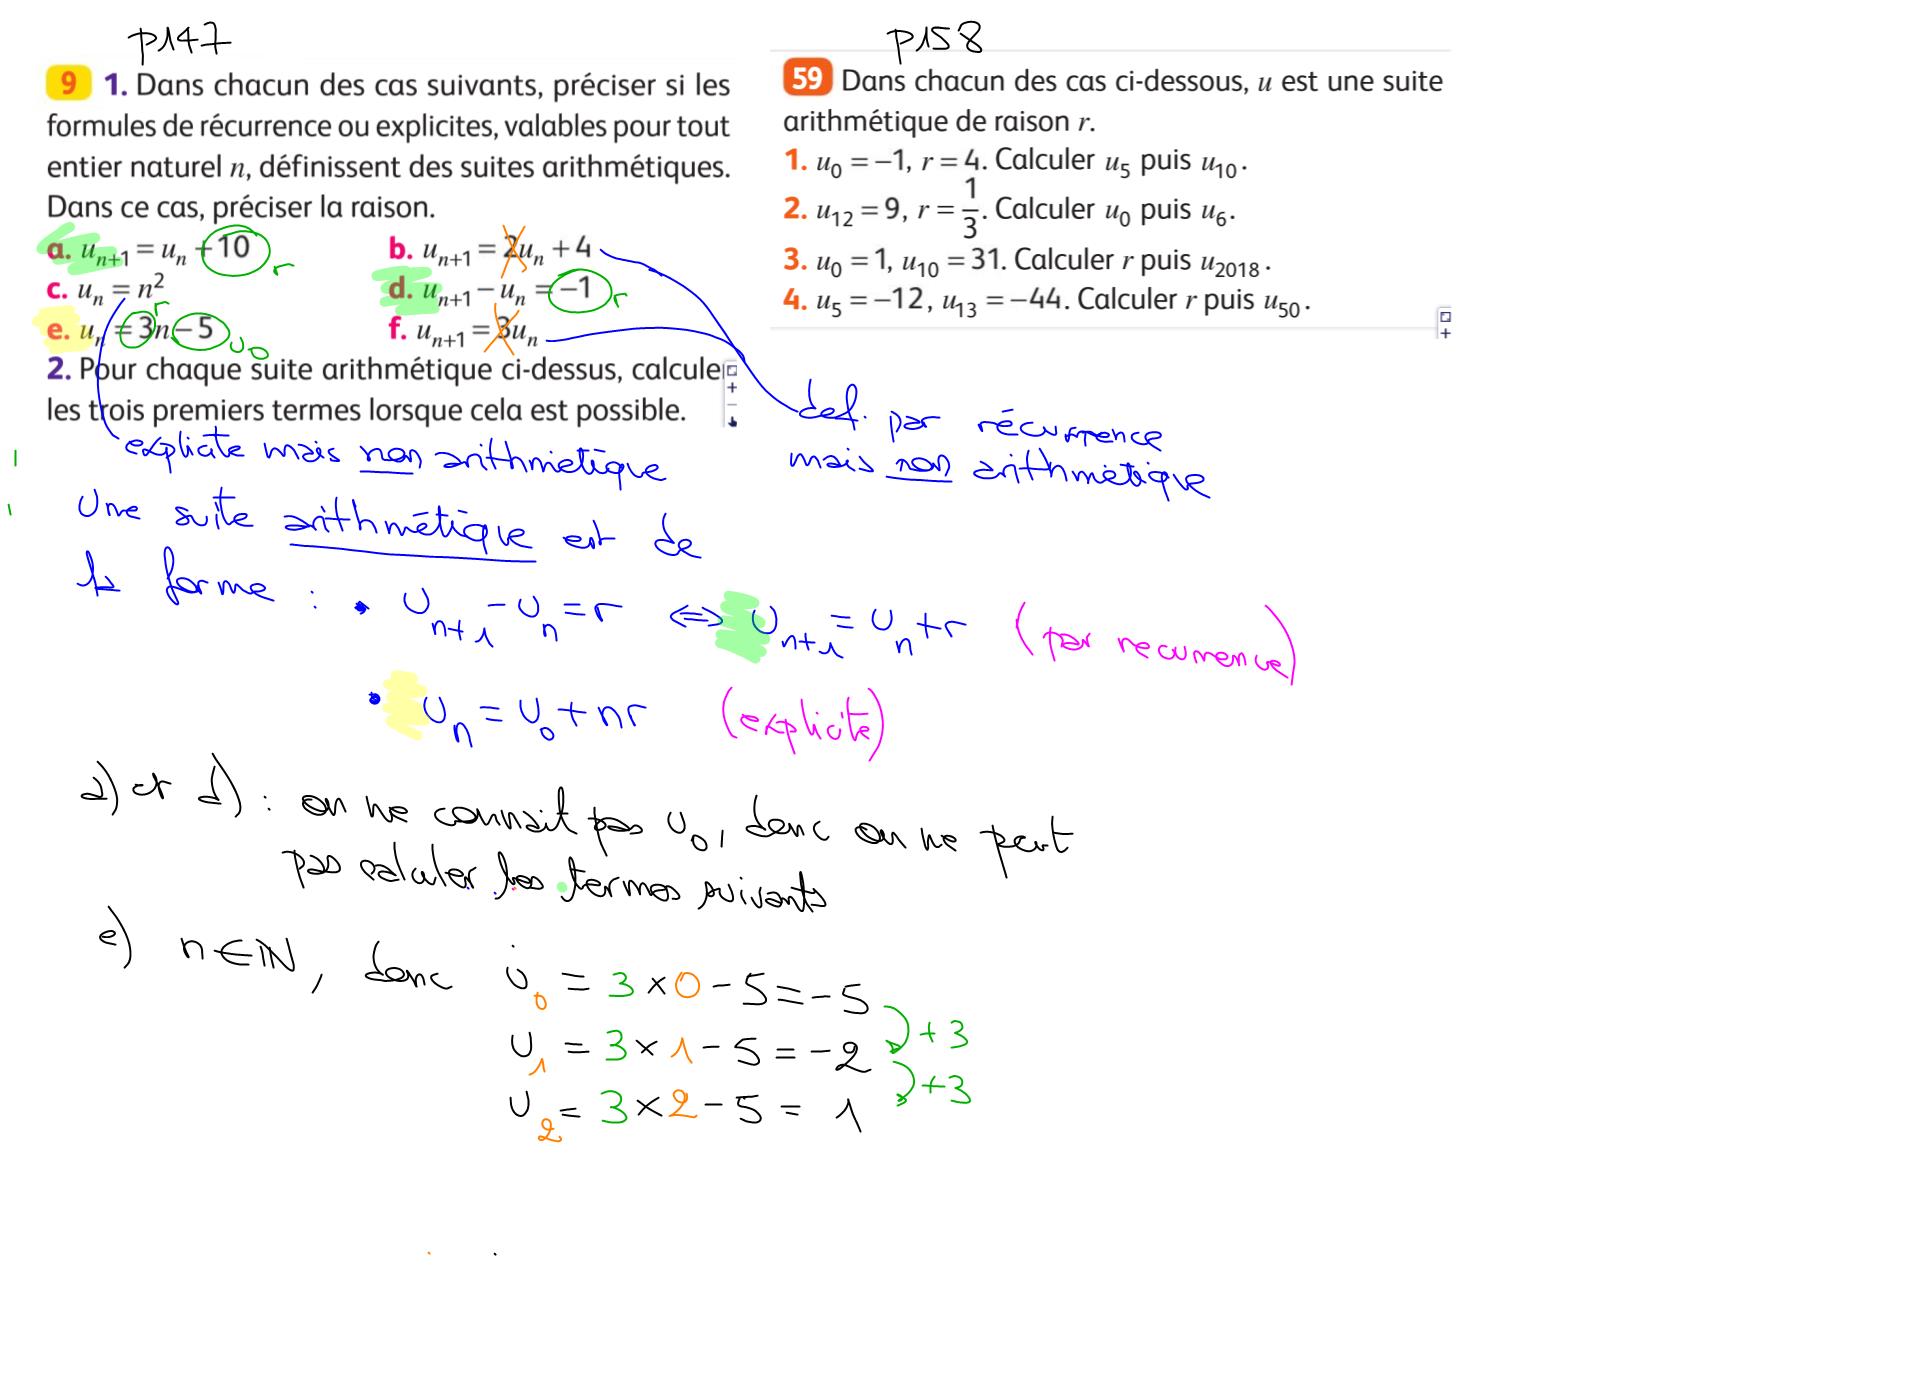 p147
9 1. Dans chacun des cas suivants, préciser si les
formules de récurrence ou explicites, valables pour tout
entier naturel n, définissent des suites arithmétiques.
Dans ce cas, préciser la raison.
a. uₙ₊₁ = uₙ + 10 r
b. uₙ₊₁ = 2uₙ + 4
c. uₙ = n²
d. uₙ₊₁ − uₙ = −1 r
e. uₙ = 3n − 5 r u₀
f. uₙ₊₁ = 3uₙ
2. Pour chaque suite arithmétique ci-dessus, calculer
les trois premiers termes lorsque cela est possible.
p158
59 Dans chacun des cas ci-dessous, u est une suite
arithmétique de raison r.
1. u₀ = −1, r = 4. Calculer u₅ puis u₁₀.
2. u₁₂ = 9, r = 1/3. Calculer u₀ puis u₆.
3. u₀ = 1, u₁₀ = 31. Calculer r puis u₂₀₁₈.
4. u₅ = −12, u₁₃ = −44. Calculer r puis u₅₀.
def. par récurrence
mais non arithmétique
explicite mais non arithmétique
Une suite arithmétique est de
la forme : • Uₙ₊₁ − Uₙ = r ⇔ Uₙ₊₁ = Uₙ + r (par recurrence)
• Uₙ = U₀ + nr (explicite)
a) et d) : on ne connait pas U₀, donc on ne peut
pas calculer les termes suivants
e) n ∈ ℕ, donc U₀ = 3 × 0 − 5 = −5
+3
U₁ = 3 × 1 − 5 = −2
+3
U₂ = 3 × 2 − 5 = 1